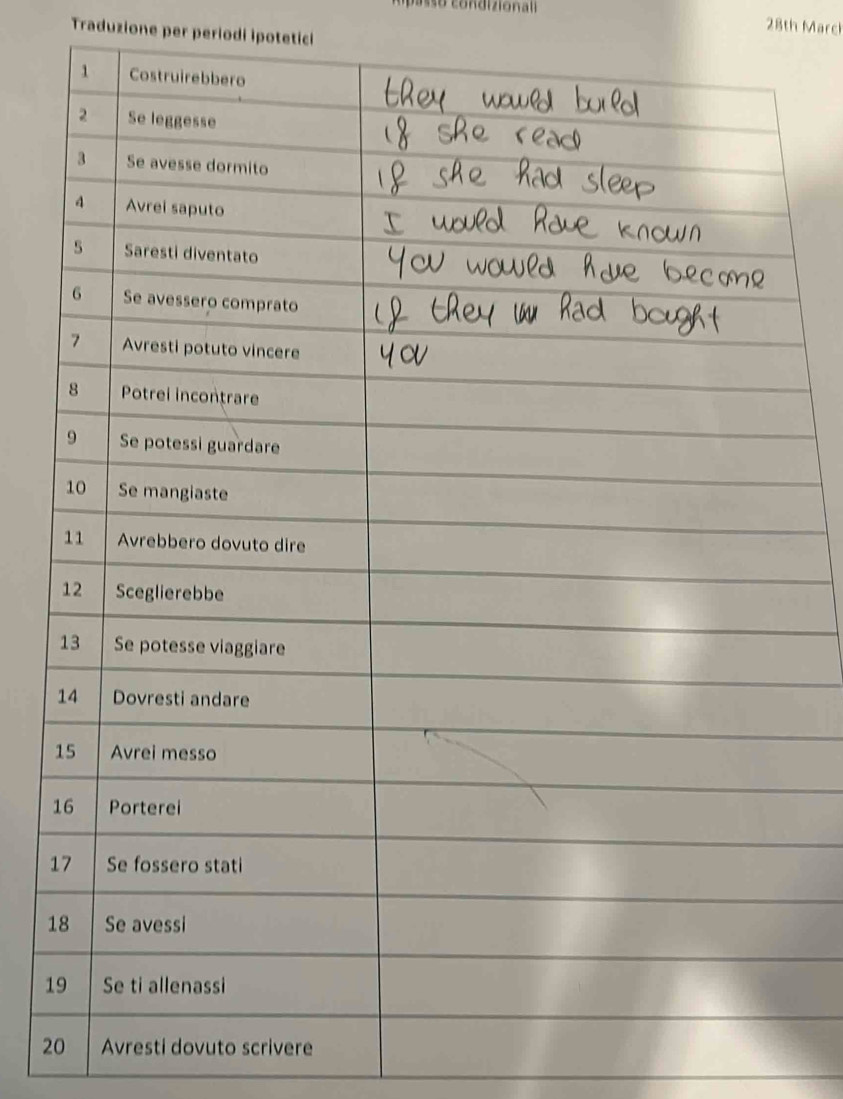 Ripasso condizionali
28th March
Traduzione per periodi ipotetici
1 Costruirebbero they would build
2 Se leggesse if she read
3 Se avesse dormito if she had sleep
4 Avrei saputo I would have known
5 Saresti diventato you would have become
6 Se avessero comprato if they had bought
7 Avresti potuto vincere you
8 Potrei incontrare
9 Se potessi guardare
10 Se mangiaste
11 Avrebbero dovuto dire
12 Sceglierebbe
13 Se potesse viaggiare
14 Dovresti andare
15 Avrei messo
16 Porterei
17 Se fossero stati
18 Se avessi
19 Se ti allenassi
20 Avresti dovuto scrivere